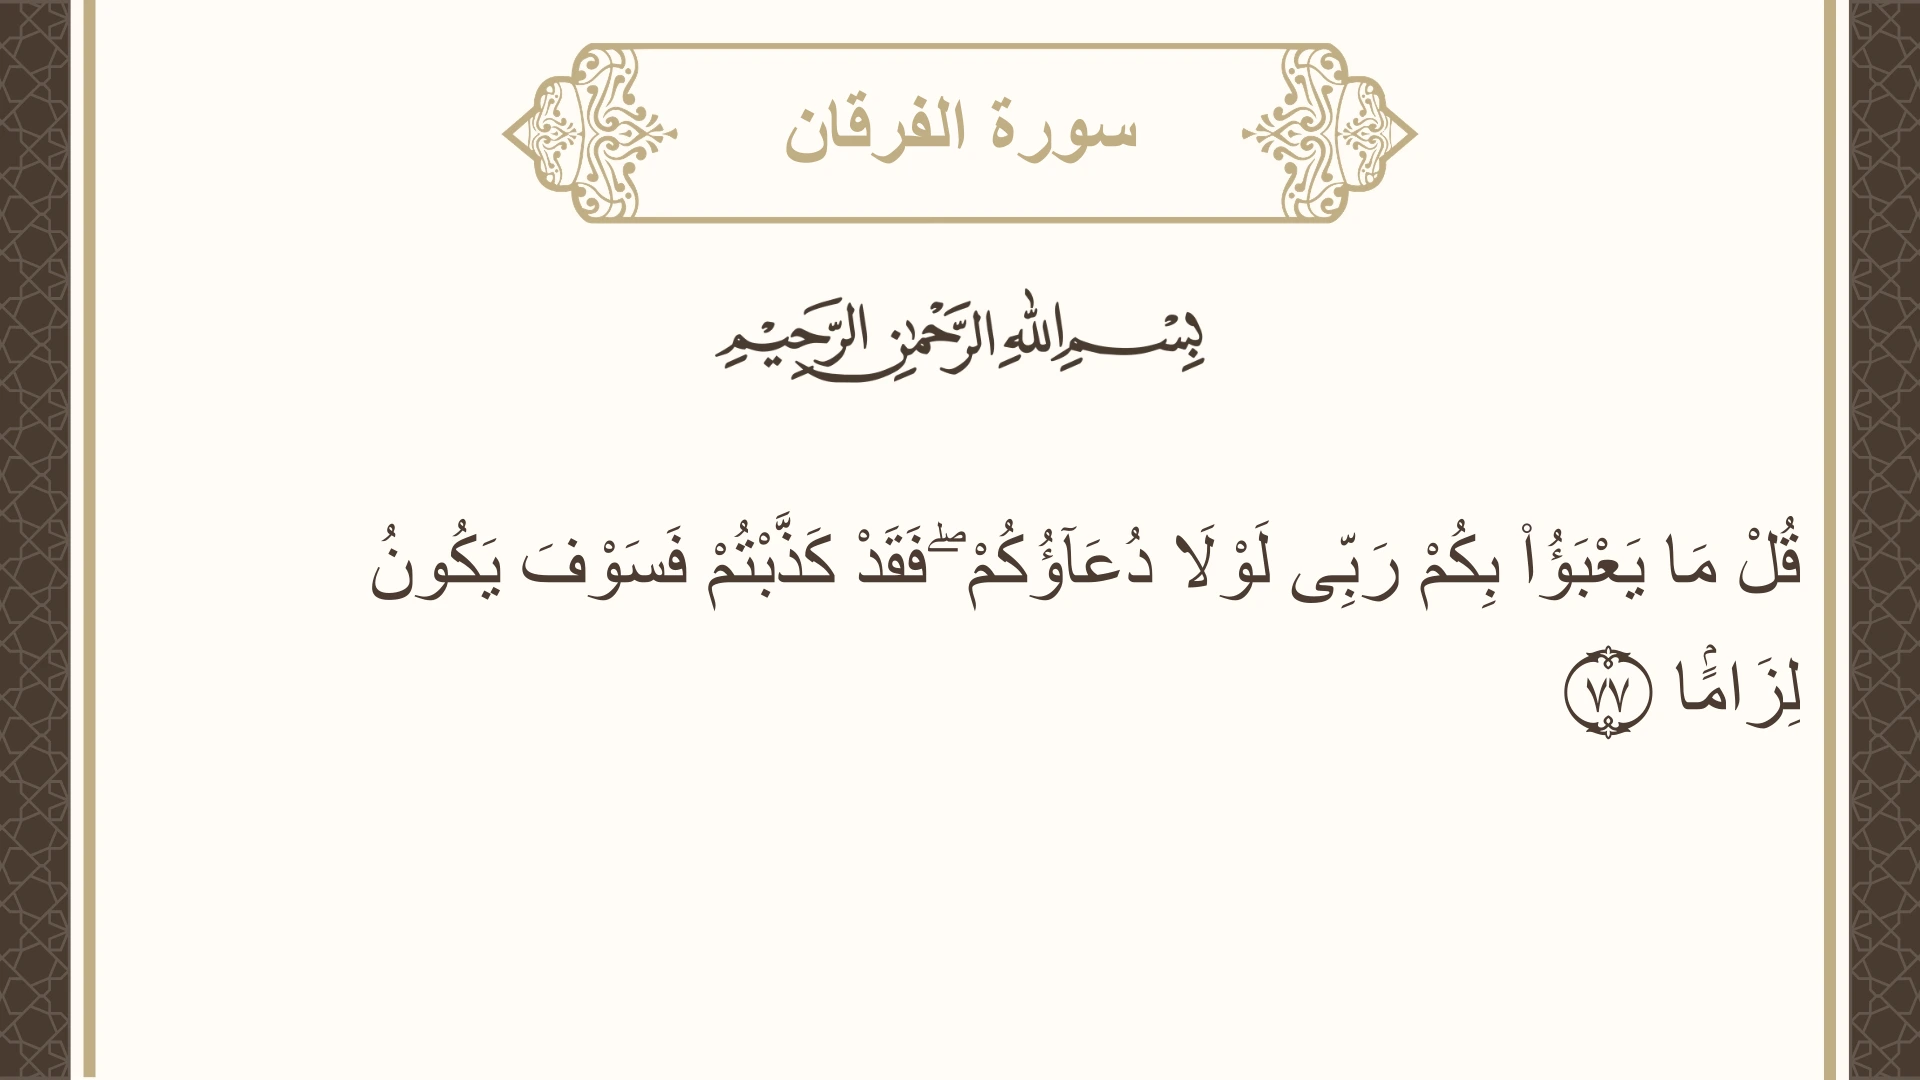 سورة الفرقان
بِسْمِ اللهِ الرَّحْمٰنِ الرَّحِيْمِ
قُلْ مَا يَعْبَؤُا۟ بِكُمْ رَبِّى لَوْلَا دُعَآؤُكُمْ ۖ فَقَدْ كَذَّبْتُمْ فَسَوْفَ يَكُونُ
لِزَامًۢا ٧٧